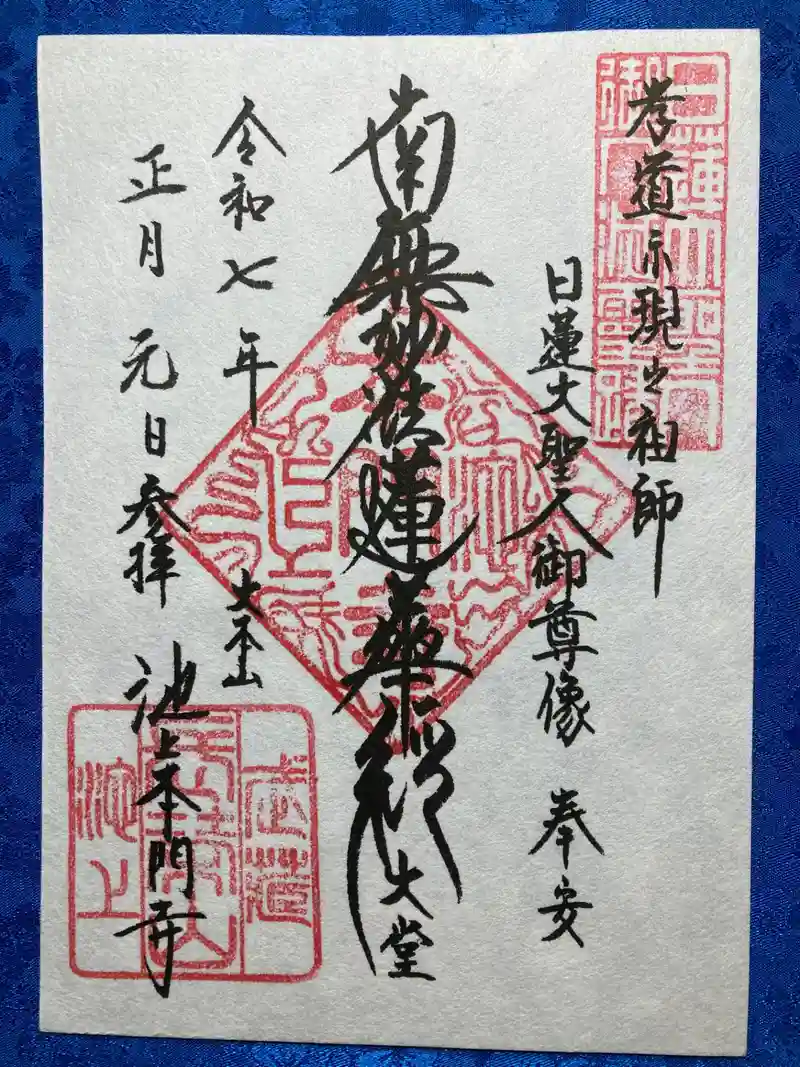 孝道示現之祖師
日蓮大聖人御尊像 奉安
南無妙法蓮華経 大堂
令和七年 大本山
正月元日参拝 池上本門寺
武蔵
長栄山
池上